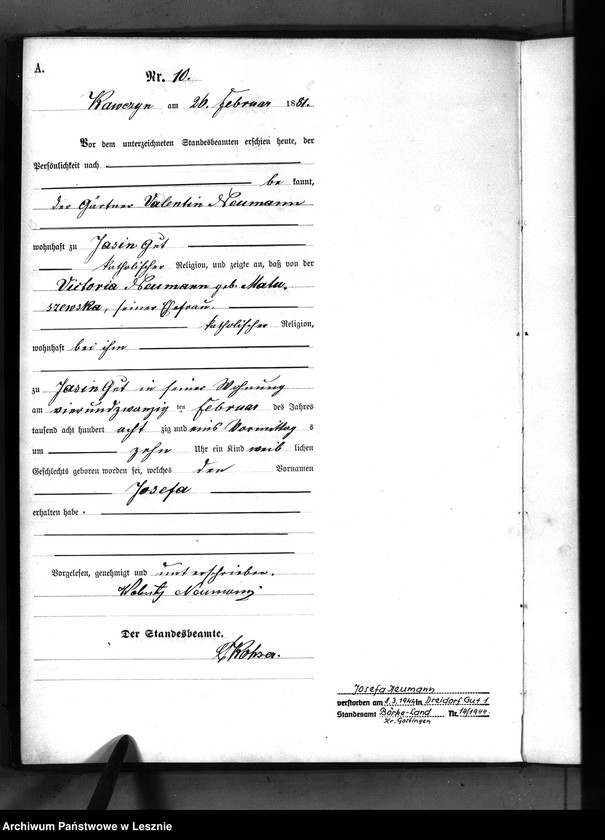 A.
Nr. 10.
Kawczyn am 26. Februar 1881.
Vor dem unterzeichneten Standesbeamten erschien heute, der
Persönlichkeit nach
be kannt,
der Gärtner Valentin Neumann
wohnhaft zu Jasin Gut
katholischer Religion, und zeigte an, daß von der
Victoria Neumann geb. Matu-
szewska, seiner Ehefrau,
katholischer Religion,
wohnhaft bei ihm
zu Jasin Gut in seiner Wohnung
am vierundzwanzig ten Februar des Jahres
tausend acht hundert acht zig und eins Vormittag s
um zehn Uhr ein Kind weib lichen
Geschlechts geboren worden sei, welches den Vornamen
Josefa
erhalten habe.
Vorgelesen, genehmigt und unterschrieben.
Neumann
Der Standesbeamte.
Josefa Neumann
verstorben am 8.3.1944 in Dreidorf Gut 1
Standesamt Börke-Land Nr. 14/1944.
Kr. Gostingen
Archiwum Państwowe w Lesznie